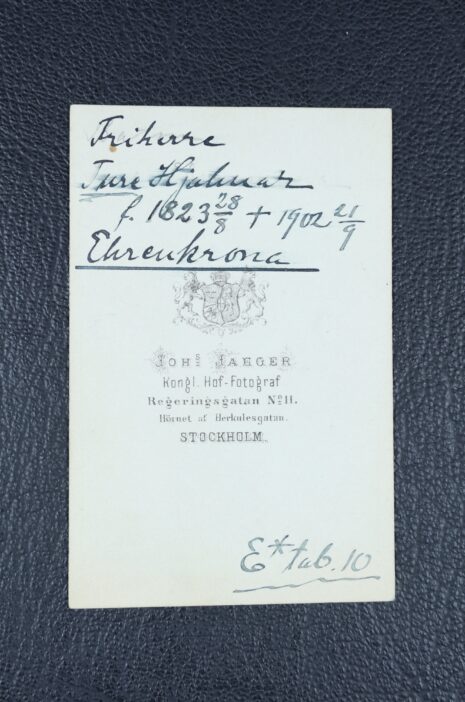 Friherre
Ture Hjalmar
f. 1823 28/8 + 1902 21/9
Ehrenkrona
JOHS JAEGER
Kongl. Hof-Fotograf
Regeringsgatan No 11.
Hörnet af Herkulesgatan.
STOCKHOLM.
E* tab. 10